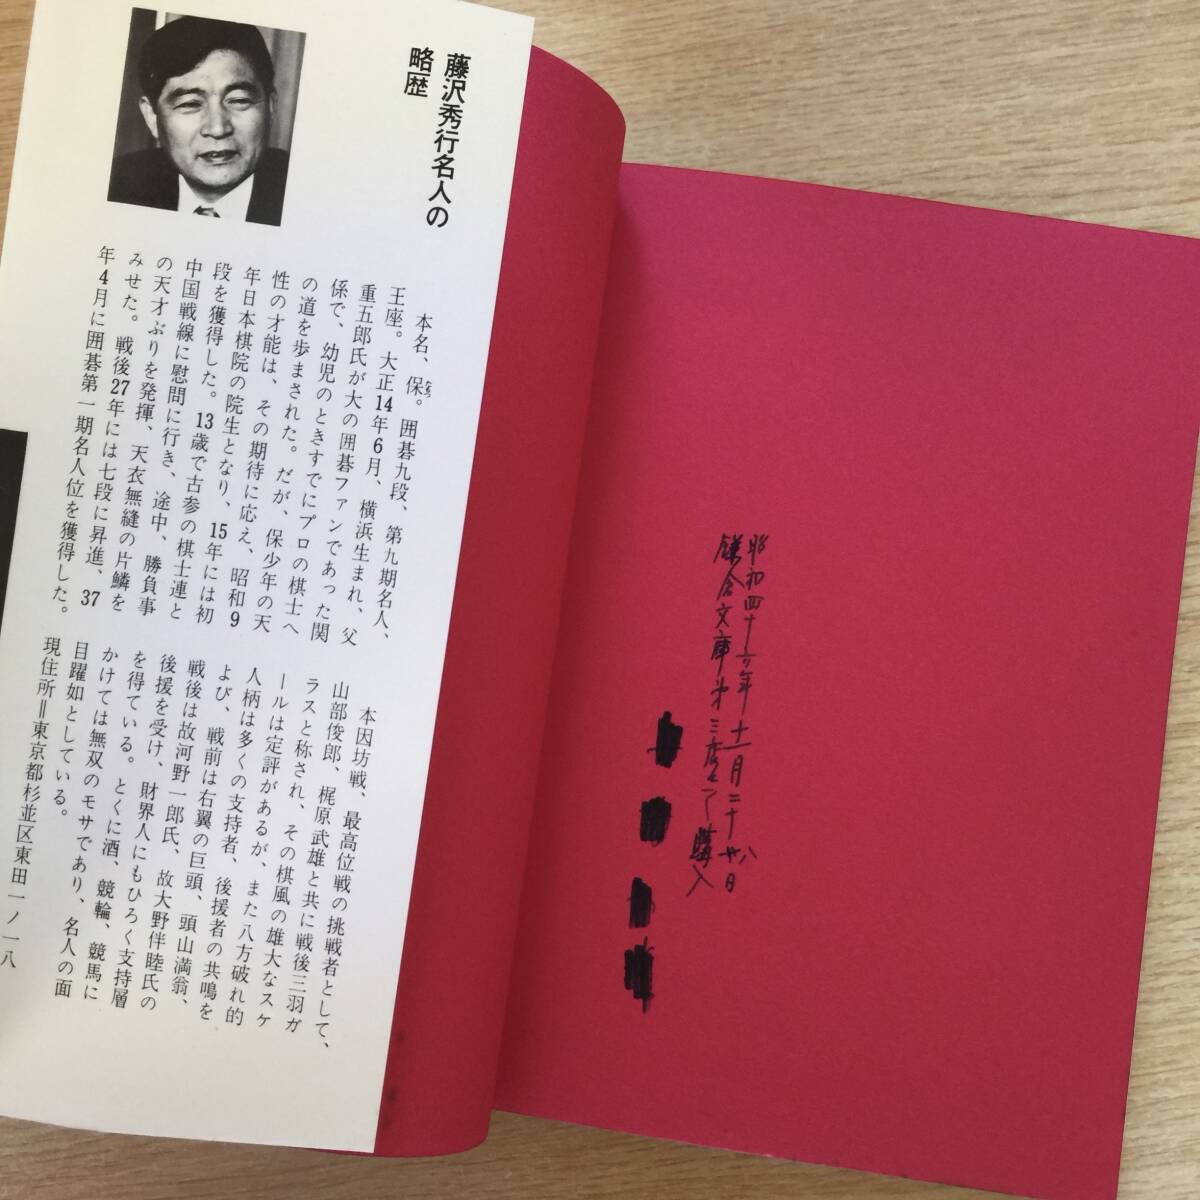 藤沢秀行名人の
略歴
本名、保。囲碁九段、第九期名人、
王座。大正14年6月、横浜生まれ、父
重五郎氏が大の囲碁ファンであった関
係で、幼児のときすでにプロの棋士へ
の道を歩まされた。だが、保少年の天
性の才能は、その期待に応え、昭和9
年日本棋院の院生となり、15年には初
段を獲得した。13歳で古参の棋士連と
中国戦線に慰問に行き、途中、勝負事
の天才ぶりを発揮、天衣無縫の片鱗を
みせた。戦後27年には七段に昇進、37
年4月に囲碁第一期名人位を獲得した。
本因坊戦、最高位戦の挑戦者として、
山部俊郎、梶原武雄と共に戦後三羽ガ
ラスと称され、その棋風の雄大なスケ
ールは定評があるが、また八方破れ的
人柄は多くの支持者、後援者の共鳴を
よび、戦前は右翼の巨頭、頭山満翁、
戦後は故河野一郎氏、故大野伴睦氏の
後援を受け、財界人にもひろく支持層
を得ている。とくに酒、競輪、競馬に
かけては無双のモサであり、名人の面
目躍如としている。
現住所＝東京都杉並区東田一ノ一八
昭和四十六年十一月二十八日
鎌倉文庫第三店にて購入